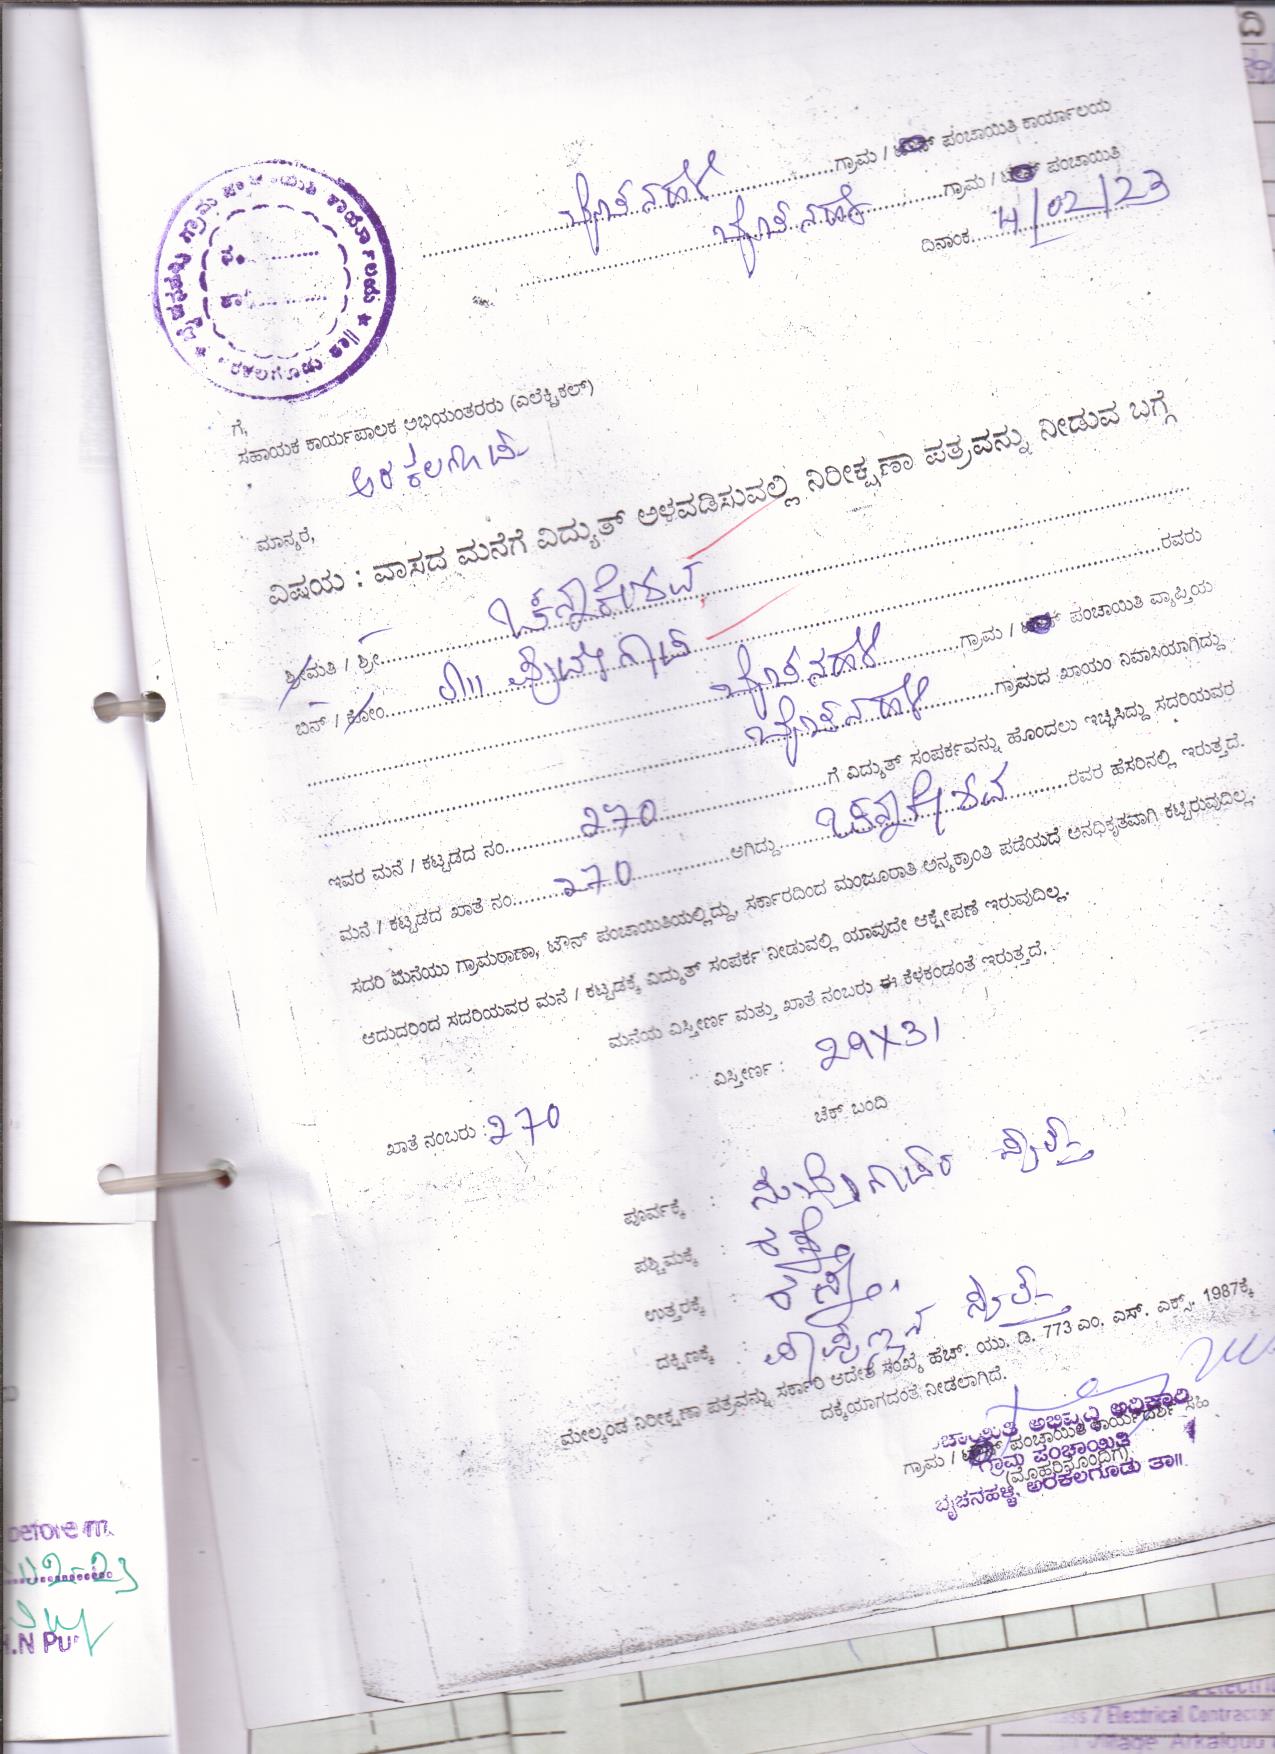 ಗ್ರಾಮ ಪಂಚಾಯಿತಿ ಕಾರ್ಯಾಲಯ
ಬೈಚನಹಳ್ಳಿ ಗ್ರಾಮ / ಟೌನ್ ಪಂಚಾಯಿತಿ ಕಾರ್ಯಾಲಯ
ಬೈಚನಹಳ್ಳಿ ಗ್ರಾಮ / ಟೌನ್ ಪಂಚಾಯಿತಿ
ದಿನಾಂಕ 4/02/23
ಗೆ,
ಸಹಾಯಕ ಕಾರ್ಯಪಾಲಕ ಅಭಿಯಂತರರು (ಎಲೆಕ್ಟ್ರಿಕಲ್)
ಅರಕಲಗೂಡು
ಮಾನ್ಯರೆ,
ವಿಷಯ : ವಾಸದ ಮನೆಗೆ ವಿದ್ಯುತ್ ಅಳವಡಿಸುವಲ್ಲಿ ನಿರೀಕ್ಷಣಾ ಪತ್ರವನ್ನು ನೀಡುವ ಬಗ್ಗೆ
ಶ್ರೀಮತಿ / ಶ್ರೀ ಚೆನ್ನಾಕೇಶವ
ಬಿನ್ / ಕೋಂ ರವರು
ಬೈಚನಹಳ್ಳಿ ಗ್ರಾಮ / ಟೌನ್ ಪಂಚಾಯಿತಿ ವ್ಯಾಪ್ತಿಯ
ಬೈಚನಹಳ್ಳಿ ಗ್ರಾಮದ ಖಾಯಂ ನಿವಾಸಿಯಾಗಿದ್ದು
ಇವರ ಮನೆ / ಕಟ್ಟಡದ ನಂ. 270 ಗೆ ವಿದ್ಯುತ್ ಸಂಪರ್ಕವನ್ನು ಹೊಂದಲು ಇಚ್ಛಿಸಿದ್ದು ಸದರಿಯವರ
ಮನೆ / ಕಟ್ಟಡದ ಖಾತೆ ನಂ. 270 ಆಗಿದ್ದು ಚೆನ್ನಾಕೇಶವ ರವರ ಹೆಸರಿನಲ್ಲಿ ಇರುತ್ತದೆ.
ಸದರಿ ಮನೆಯು ಗ್ರಾಮಠಾಣಾ, ಟೌನ್ ಪಂಚಾಯಿತಿಯಲ್ಲಿದ್ದು, ಸರ್ಕಾರದಿಂದ ಮಂಜೂರಾತಿ ಅನ್ಯಕ್ರಾಂತಿ ಪಡೆಯದೆ ಅನಧಿಕೃತವಾಗಿ ಕಟ್ಟಿರುವುದಿಲ್ಲ.
ಆದುದರಿಂದ ಸದರಿಯವರ ಮನೆ / ಕಟ್ಟಡಕ್ಕೆ ವಿದ್ಯುತ್ ಸಂಪರ್ಕ ನೀಡುವಲ್ಲಿ ಯಾವುದೇ ಆಕ್ಷೇಪಣೆ ಇರುವುದಿಲ್ಲ.
ಮನೆಯ ವಿಸ್ತೀರ್ಣ ಮತ್ತು ಖಾತೆ ನಂಬರು ಈ ಕೆಳಕಂಡಂತೆ ಇರುತ್ತದೆ.
ವಿಸ್ತೀರ್ಣ : 29X31
ಖಾತೆ ನಂಬರು : 270
ಚೆಕ್ ಬಂದಿ
ಪೂರ್ವಕ್ಕೆ :
ಪಶ್ಚಿಮಕ್ಕೆ : ರಸ್ತೆ
ಉತ್ತರಕ್ಕೆ : ರಸ್ತೆ
ದಕ್ಷಿಣಕ್ಕೆ :
ಮೇಲ್ಕಂಡ ನಿರೀಕ್ಷಣಾ ಪತ್ರವನ್ನು ಸರ್ಕಾರಿ ಆದೇಶ ಸಂಖ್ಯೆ ಹೆಚ್. ಯು. ಡಿ. 773 ಎಂ. ಎಸ್. ಎಕ್ಸ್. 1987ಕ್ಕೆ
ದಕ್ಕೆಯಾಗದಂತೆ ನೀಡಲಾಗಿದೆ.
ಗ್ರಾಮ / ಟೌನ್ ಪಂಚಾಯಿತಿ ಕಾರ್ಯದರ್ಶಿ ಸಹಿ
(ಮೊಹರಿನೊಂದಿಗೆ)
ಪಂಚಾಯಿತಿ ಅಭಿವೃದ್ಧಿ ಅಧಿಕಾರಿ
ಗ್ರಾಮ ಪಂಚಾಯಿತಿ
ಬೈಚನಹಳ್ಳಿ, ಅರಕಲಗೂಡು ತಾ||
before m
2-23
.N Pu
Class 2 Electrical Contractor
Village Arkalgud